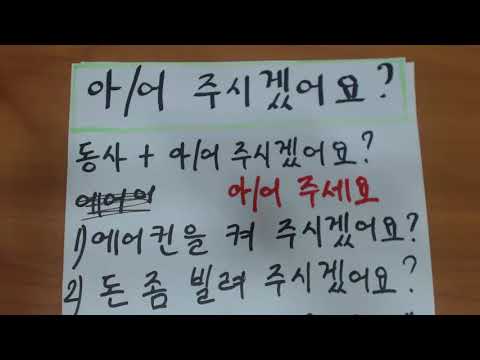 아/어 주시겠어요?
동사 + 아/어 주시겠어요?
아/어 주세요
1) 에어컨을 켜 주시겠어요?
2) 돈 좀 빌려 주시겠어요?